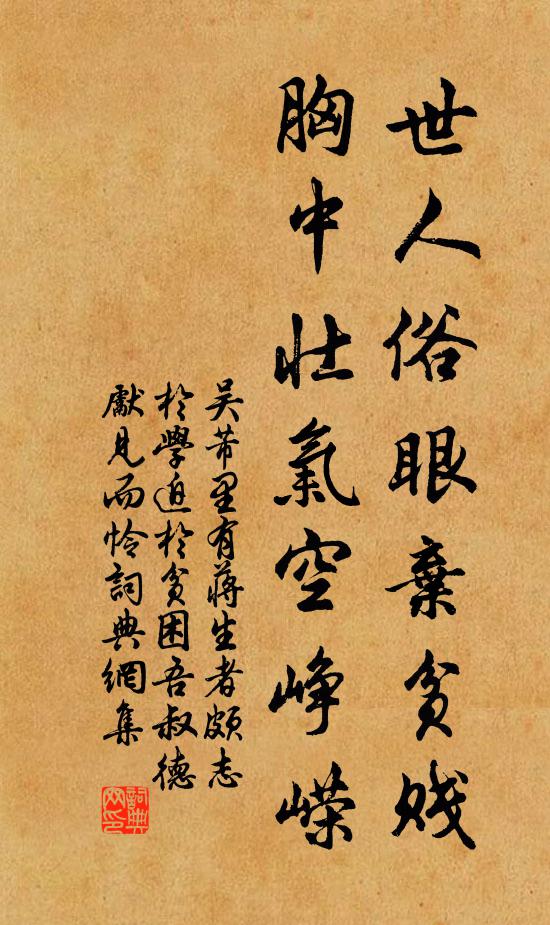 世人俗眼棄貧賤
胸中壯氣空崢嶸
吴芾里有蔣生者頗志
於學迫於貧困吾叔德
獻見而怜詞典網集
詞典
网印